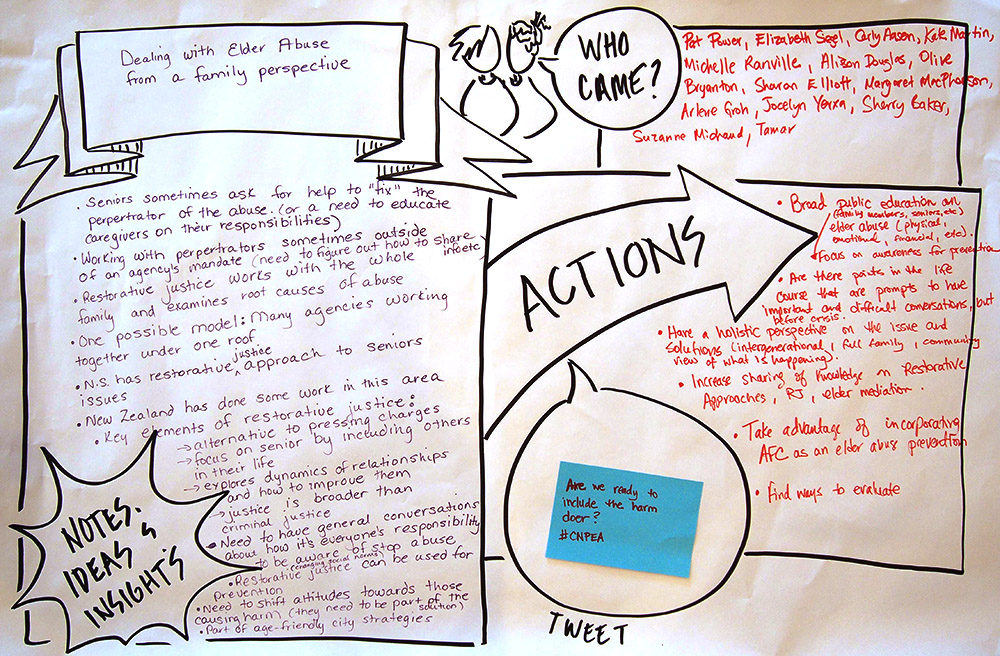 Dealing with Elder Abuse
from a family perspective
WHO
CAME?
Pat Power, Elizabeth Segel, Carly Aasen, Kate Martin,
Michelle Ranville, Alison Douglas, Olive
Bryanton, Sharon Elliott, Margaret MacPherson,
Arlene Groh, Jocelyn Yerxa, Sherry Baker,
Suzanne Michaud, Tamar
• Seniors sometimes ask for help to "fix" the
perpertrator of the abuse. (or a need to educate
caregivers on their responsibilities)
• Working with perpertrators sometimes outside
of an agency's mandate (need to figure out how to share
info etc)
• Restorative justice works with the whole
family and examines root causes of abuse
• One possible model: Many agencies working
together under one roof
• N.S. has restorative justice approach to seniors
issues
• New Zealand has done some work in this area
• Key elements of restorative justice:
→ alternative to pressing charges
→ focus on senior by including others
in their life
→ explores dynamics of relationships
and how to improve them
→ justice is
broader than
criminal justice
• Need to have general conversations
about how it's everyone's responsibility
to be aware of stop abuse
(changing social norms)
• Restorative justice can be used for
prevention
• Need to shift attitudes towards those
causing harm (they need to be part of the
solution)
• Part of age-friendly city strategies
NOTES,
IDEAS &
INSIGHTS
ACTIONS
• Broad public education on
(family members, seniors, etc)
elder abuse (physical,
emotional, financial, etc).
• Focus on awareness for prevention
• Are there points in the life
course that are prompts to have
important and difficult conversations, but
before crisis.
• Have a holistic perspective on the issue and
solutions (intergenerational, full family, community
view of what is happening).
• Increase sharing of knowledge on Restorative
Approaches, RJ, elder mediation.
• Take advantage of incorporating
AFC as an elder abuse prevention
• Find ways to evaluate
Are we ready to
include the harm
doer?
#CNPEA
TWEET